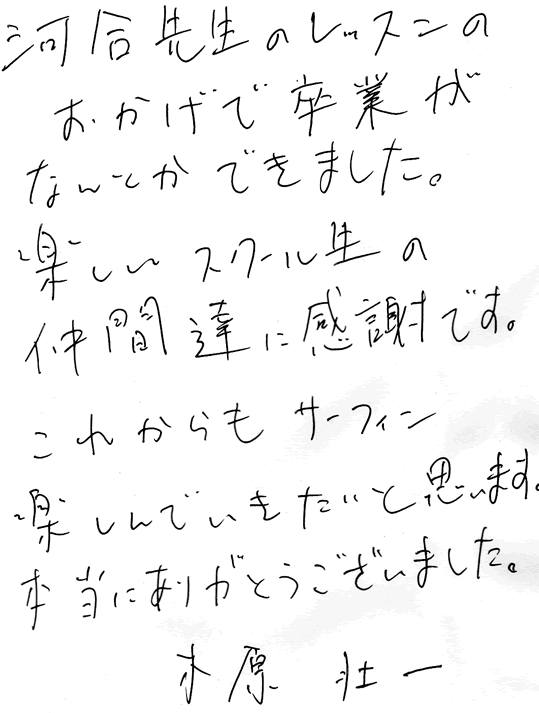 河合先生のレッスンの
おかげで卒業が
なんとかできました。
楽しいスクール生の
仲間達に感謝です。
これからもサーフィン
楽しんでいきたいと思います。
本当にありがとうございました。
木原 壮一